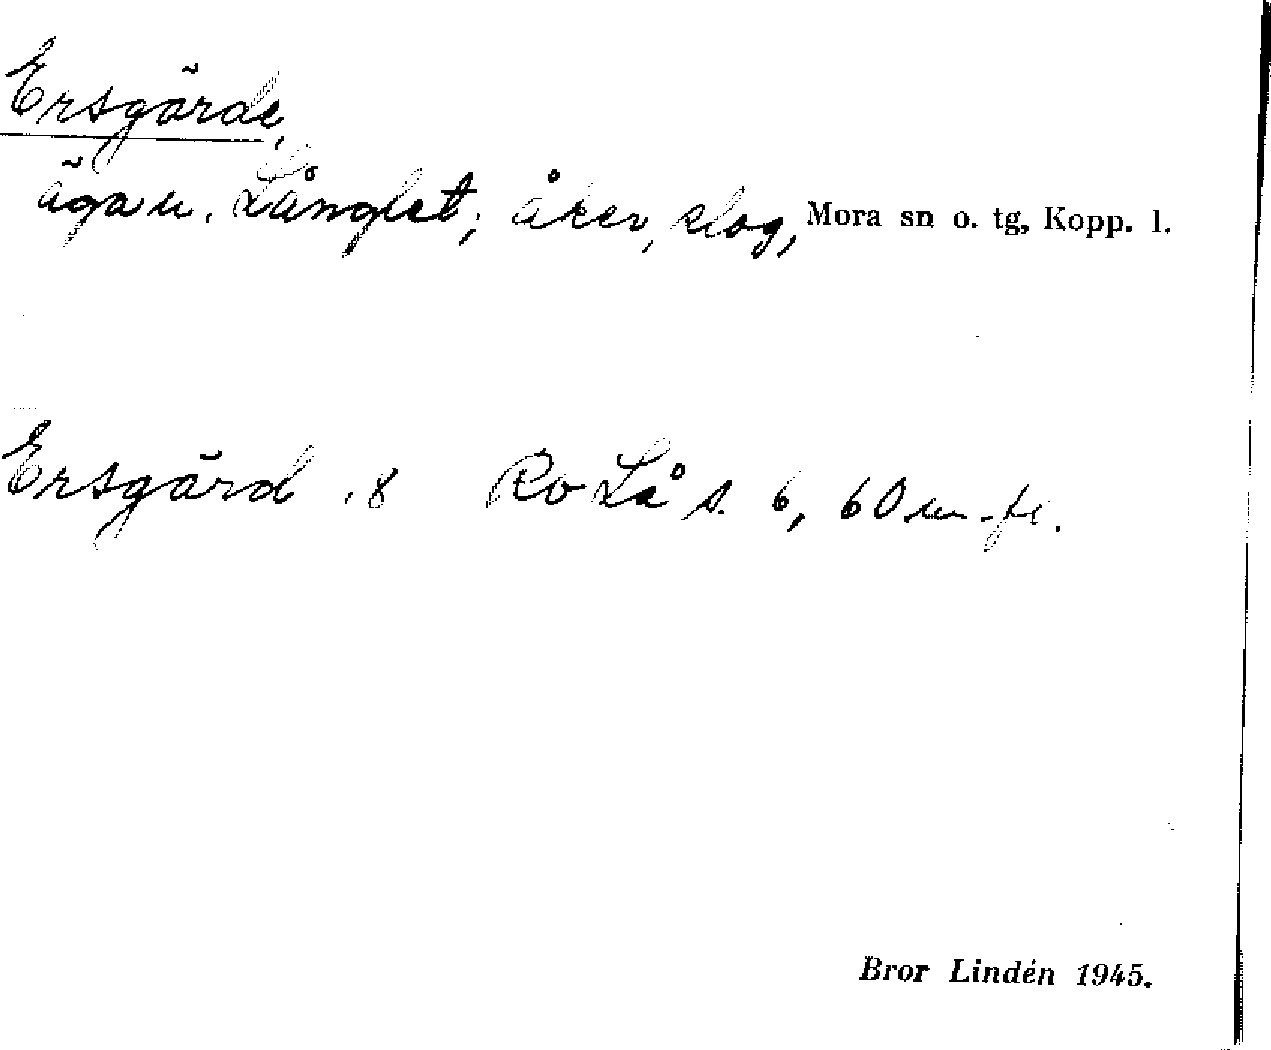 Ersgärde,
äga u. Långlet; åker, slog, Mora sn o. tg, Kopp. l.
Ersgärd . 8 Ro Lå s. 6, 60 m. fl.
Bror Lindén 1945.